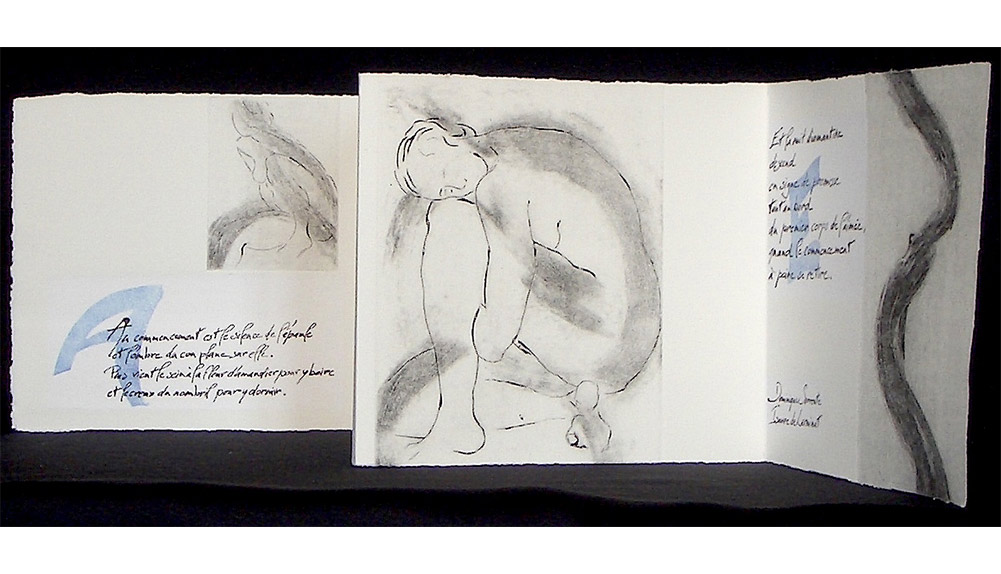 Au commencement est le silence de l'épaule
et l'ombre du cou plane sur elle.
Puis vient le sein à la fleur d'amandier pour y boire
et le creux du nombril pour y dormir.
Et la nuit diamantine
descend
en signe de promesse
tout au bord
du premier corps de l'aimée,
quand le commencement
à peine se retire.
Dominique Sorrente